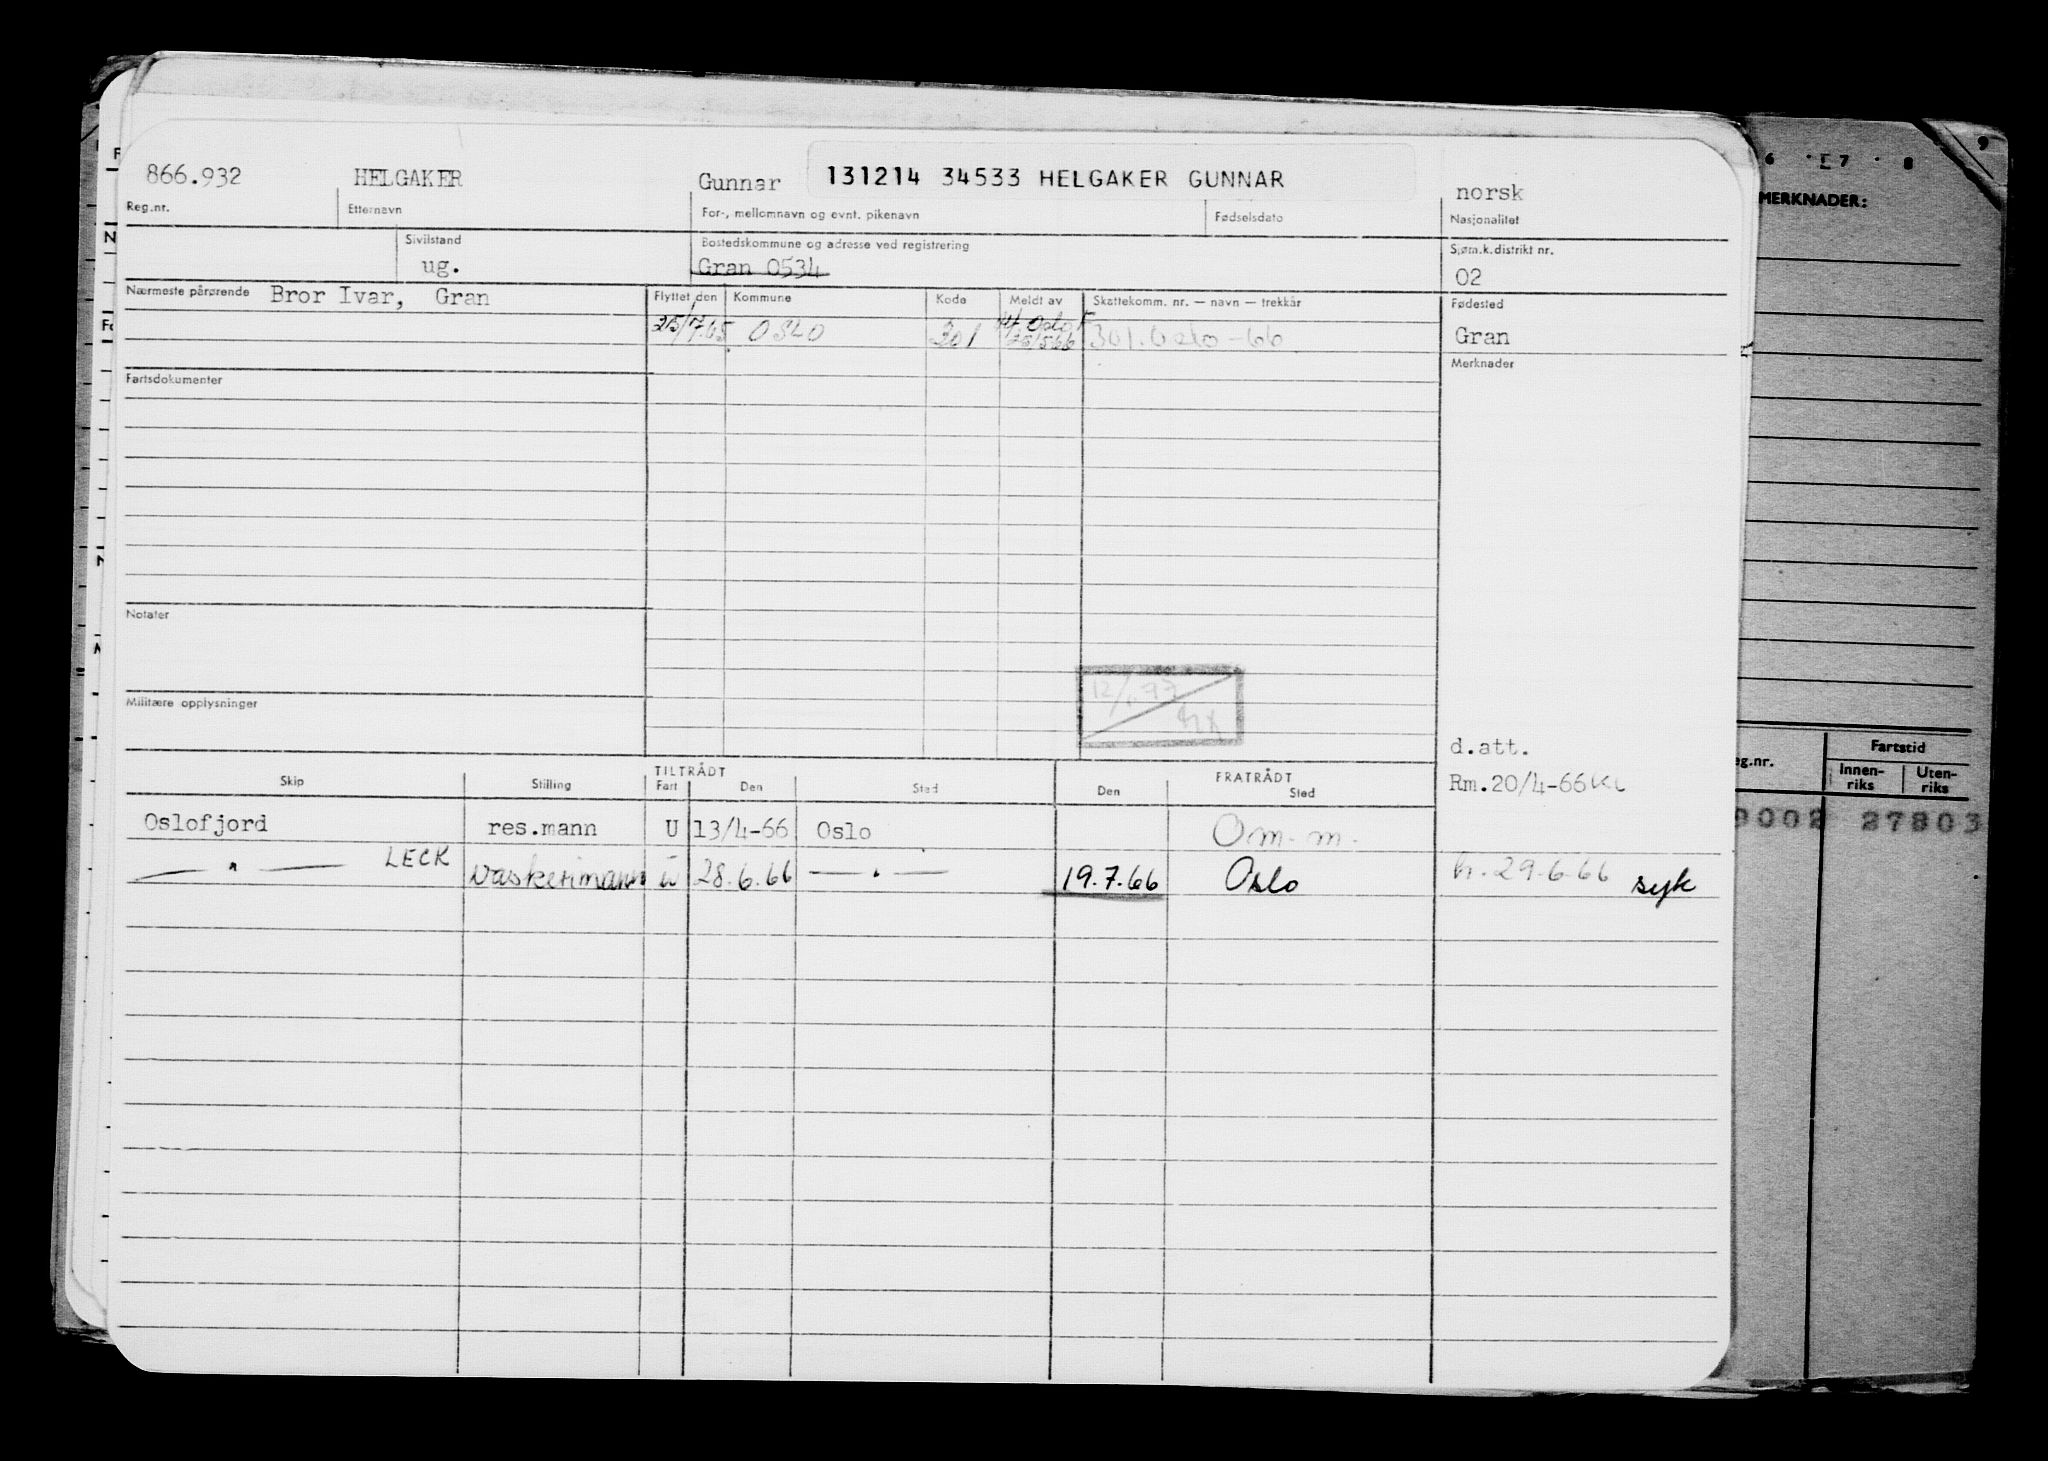 866.932 HELGAKER Gunnar 131214 34533 HELGAKER GUNNAR norsk
Reg.nr. Etternavn For-, mellomnavn og evnt. pikenavn Fødselsdato Nasjonalitet
Sivilstand Bostedskommune og adresse ved registrering Sjøm.k.distrikt nr.
ug. Gran 0534 02
Nærmeste pårørende Bror Ivar, Gran Flyttet den Kommune Kode Meldt av Skattekomm. nr. — navn — trekkår Fødested
25/7.65 OSLO 301 Oslo 301. Oslo -66 Gran
Merknader
Fartsdokumenter
Notater
Militære opplysninger
d.att.
Rm.20/4-66 KL
Skip Stilling TILTRÅDT Fart Den Sted FRATRÅDT Den Sted
Oslofjord res.mann U 13/4-66 Oslo Om. m.
— " — LECK Vaskerimann U 28.6.66 — " — 19.7.66 Oslo h. 29.6.66 syk
6 7 8 9
MERKNADER:
eg.nr. Fartstid
Innen-riks Uten-riks
9002 27803